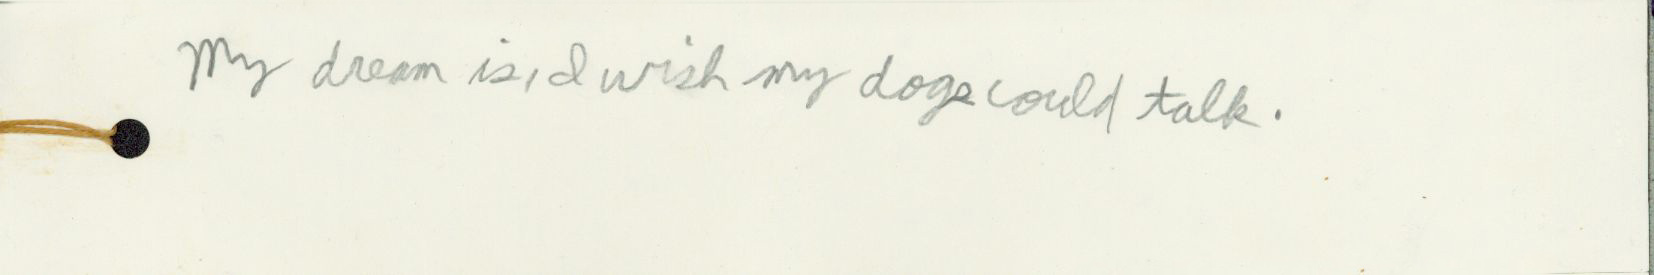 My dream is, I wish my dogs could talk.